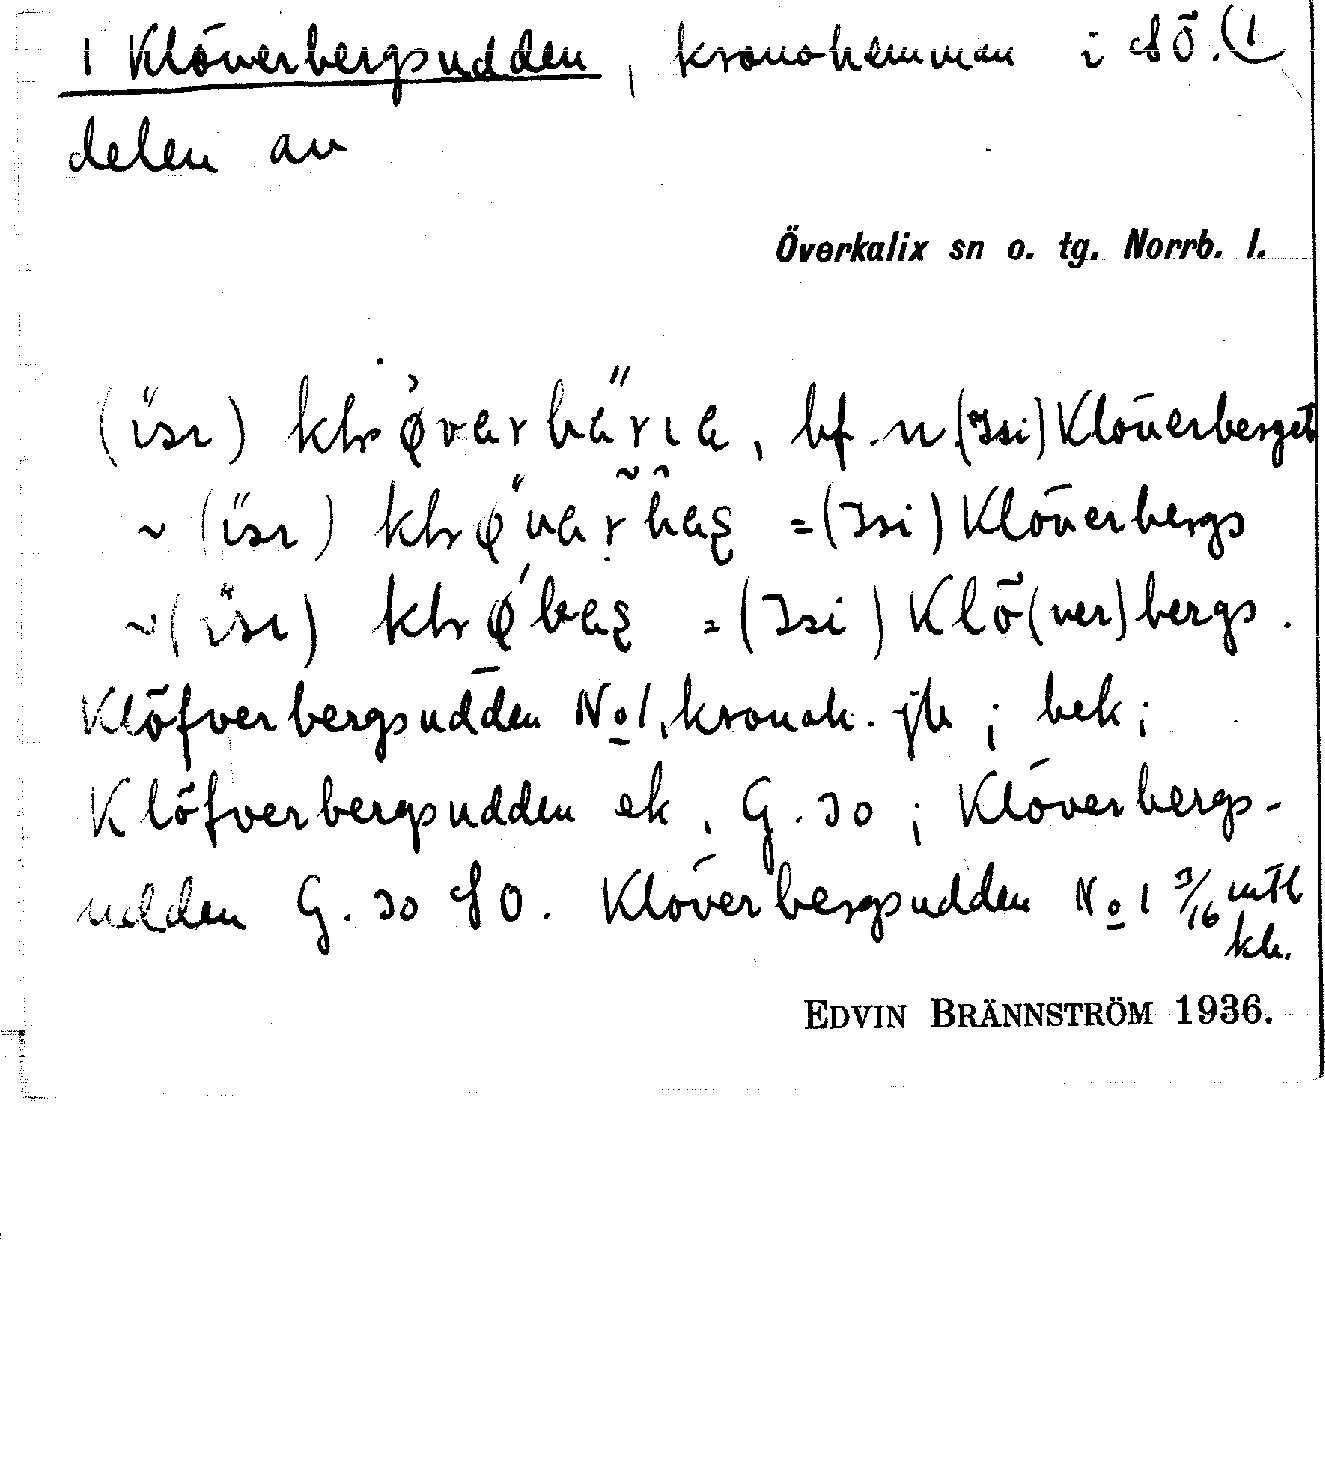 1 Klöverbergsudden, kronohemman i SÖ. (1
delen av
Överkalix sn o. tg. Norrb. l.
bf. n. (Isi) Klöverberget
~ = (Isi) Klöverbergs
~ = (Isi) Klö(ver)bergs.
Klöfverbergsudden No 1, kronoh. jb; bek;
Klöfverbergsudden ek, G. 30; Klöverbergs-
udden G. 30 SO. Klöverbergsudden No 1 3/16 mtl
kh.
EDVIN BRÄNNSTRÖM 1936.